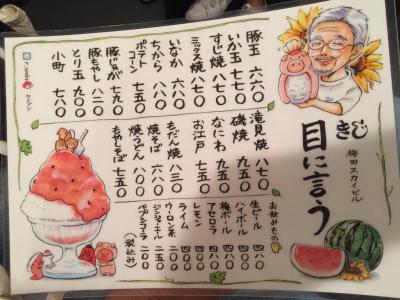 きじ
梅田スカイビル
目に言う
豚玉 六六〇
いか玉 七七〇
すじ焼 八七〇
ミックス焼 八七〇
いなか 六六〇
ちから 八一〇
ポテトコーン 七五〇
豚じゃが 七九〇
豚もやし 八二〇
とり玉 九〇〇
小町 七八〇
滝見焼 八七〇
磯焼 七五〇
なにわ 九五〇
お江戸 七五〇
もだん焼 八三〇
焼そば 六八〇
焼うどん 八一〇
もやしそば 七五〇
お飲みもの
生ビール 四八〇
ハイボール 四八〇
梅ボール 四八〇
アセロラ 四八〇
レモン 四八〇
ライム 四八〇
ウーロン茶 二〇〇
ジンジャエール 二五〇
ペプシコーラ 二五〇
(税込み)